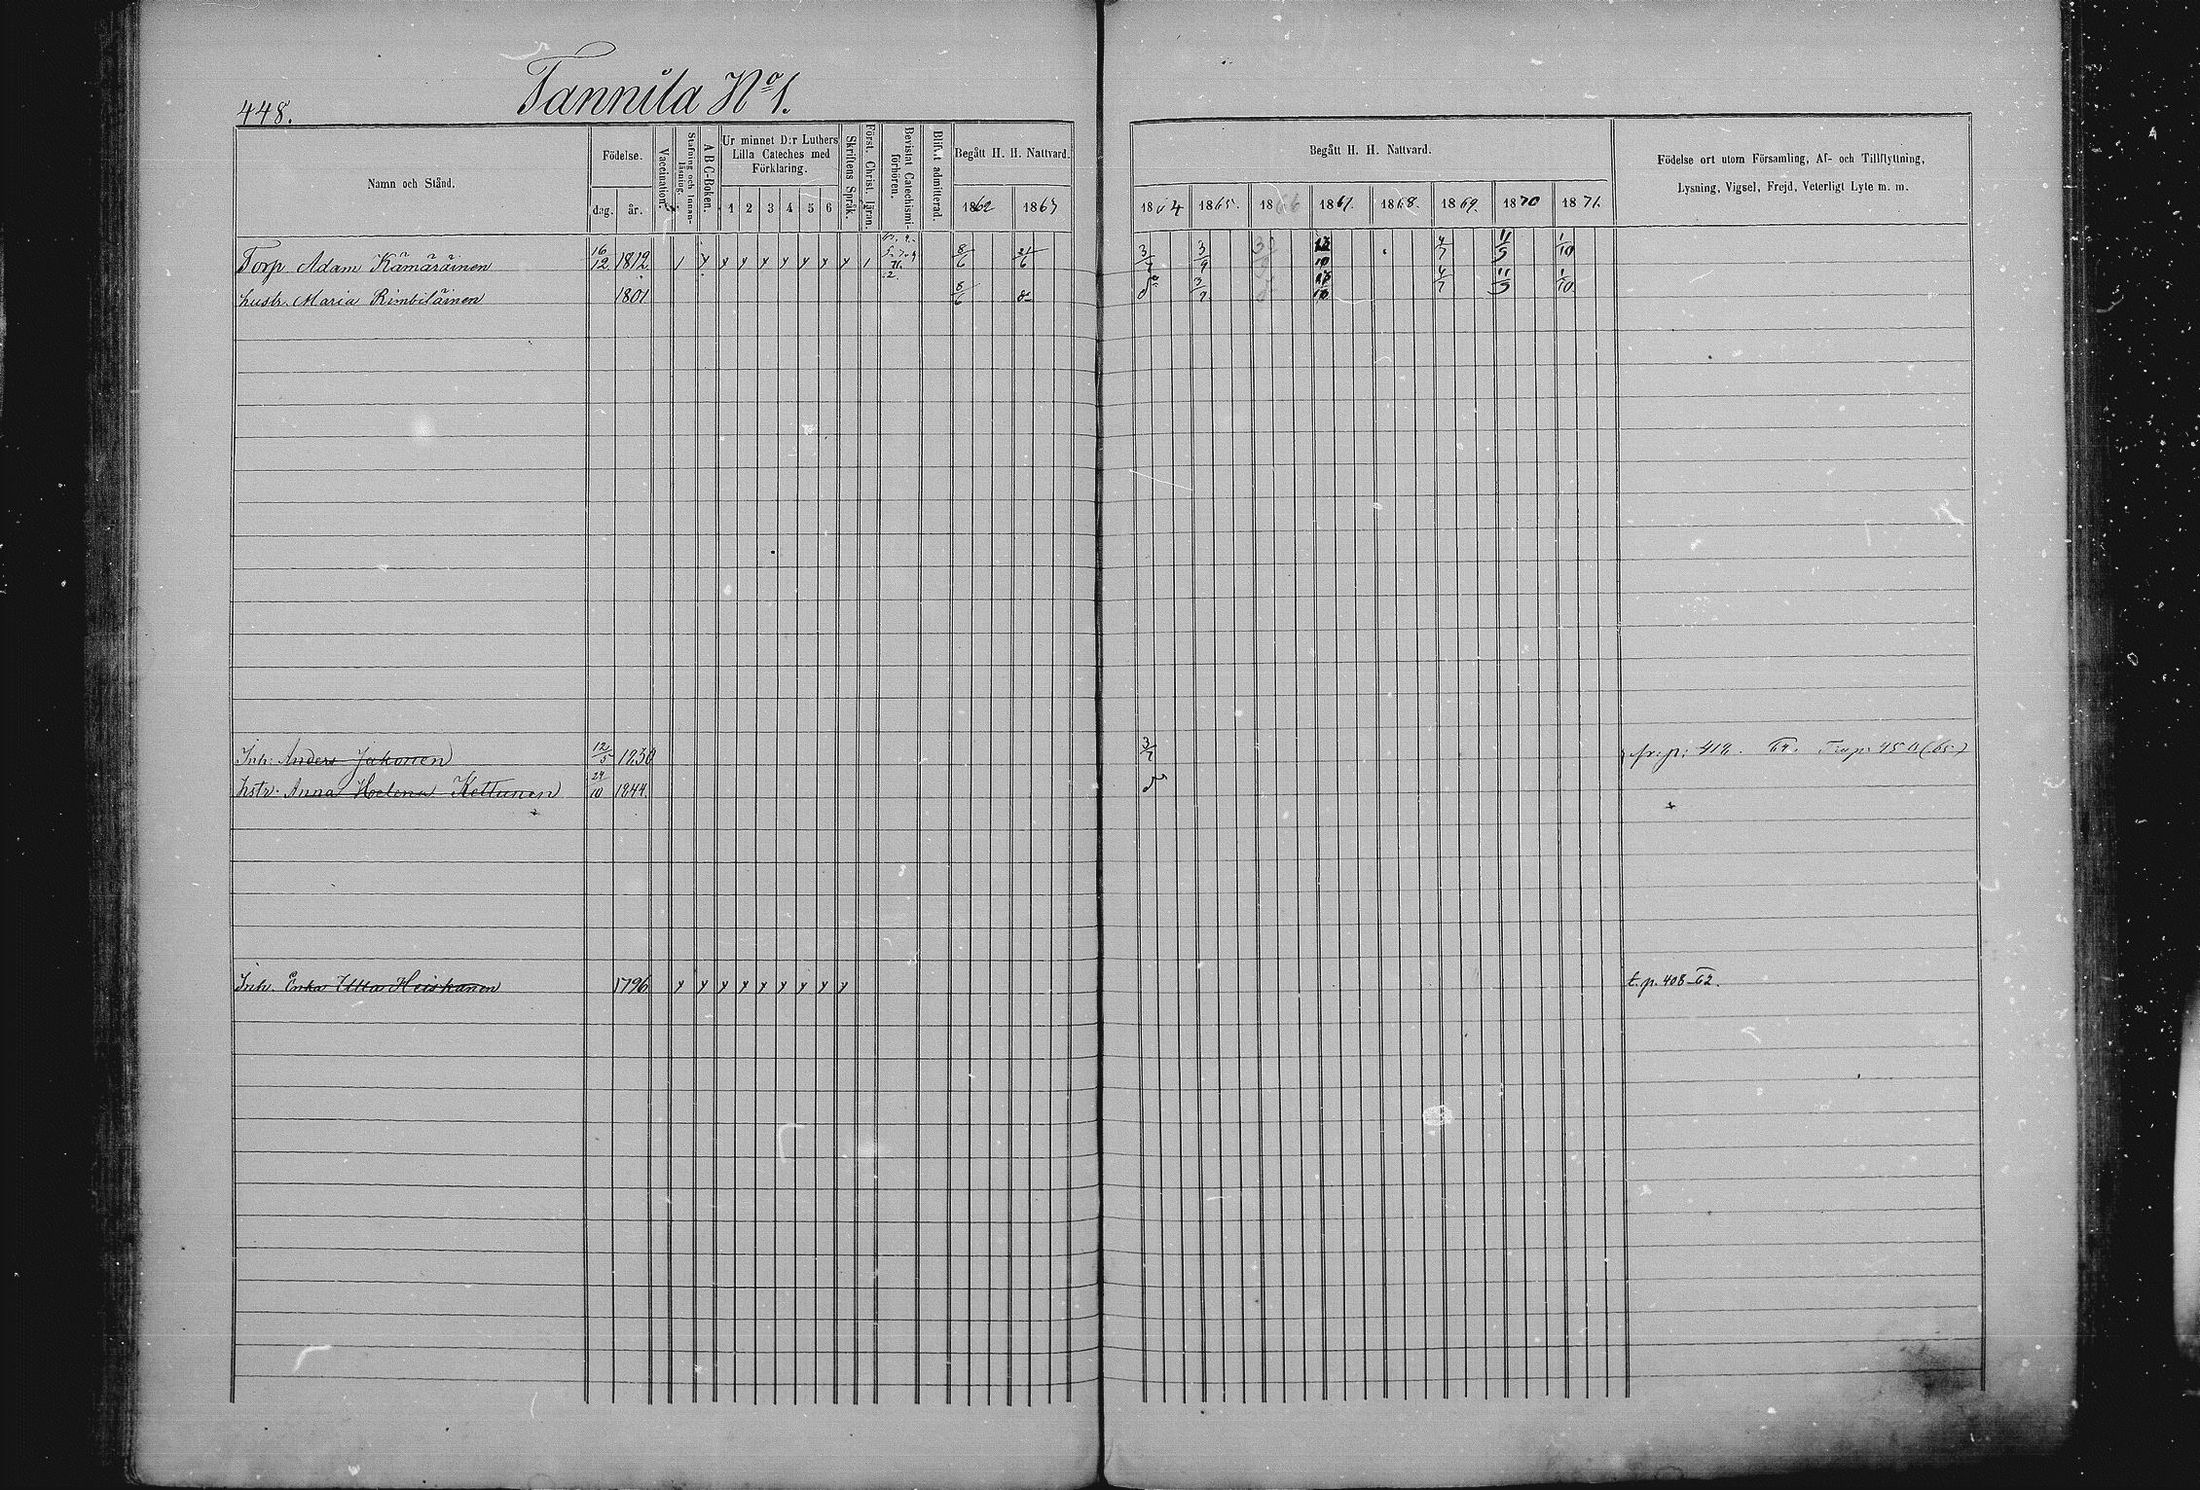 448.
Tannila No 1.
Namn och Stånd.
Födelse.
dag. år.
Vaccination.
Stafning och Innanläsning.
A B C-Boken.
Ur minnet D:r Luthers Lilla Cateches med Förklaring.
1 2 3 4 5 6
Skriftens Språk.
Först. Christ. läran.
Bevistat Catechismi-förhören.
Blifvit admitterad.
Begått H. H. Nattvard.
1862 1863
Begått H. H. Nattvard.
1864 1865. 1866 1867. 1868. 1869. 1870 1871.
Födelse ort utom Församling, Af- och Tillflyttning,
Lysning, Vigsel, Frejd, Veterligt Lyte m. m.
Torp. Adam Kämäräinen 16/12 1812 8/6 21/6 3/7 3/9 4/7 11/5 1/10
hustr. Maria Rimbiläinen 1801 8/6 3/9 4/7 11/5 1/10
Inh: Anders Jakonen 12/5 1830 3/7 fr. p: 412. 64. T. p. 450 (65)
hstr. Anna Helena Kettunen 24/10 1844.
Inh. Enka Ulla Heiskanen 1796 y y y y y y y y y t. p. 408-62.